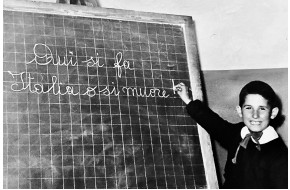 Qui si fa
Italia o si muore!